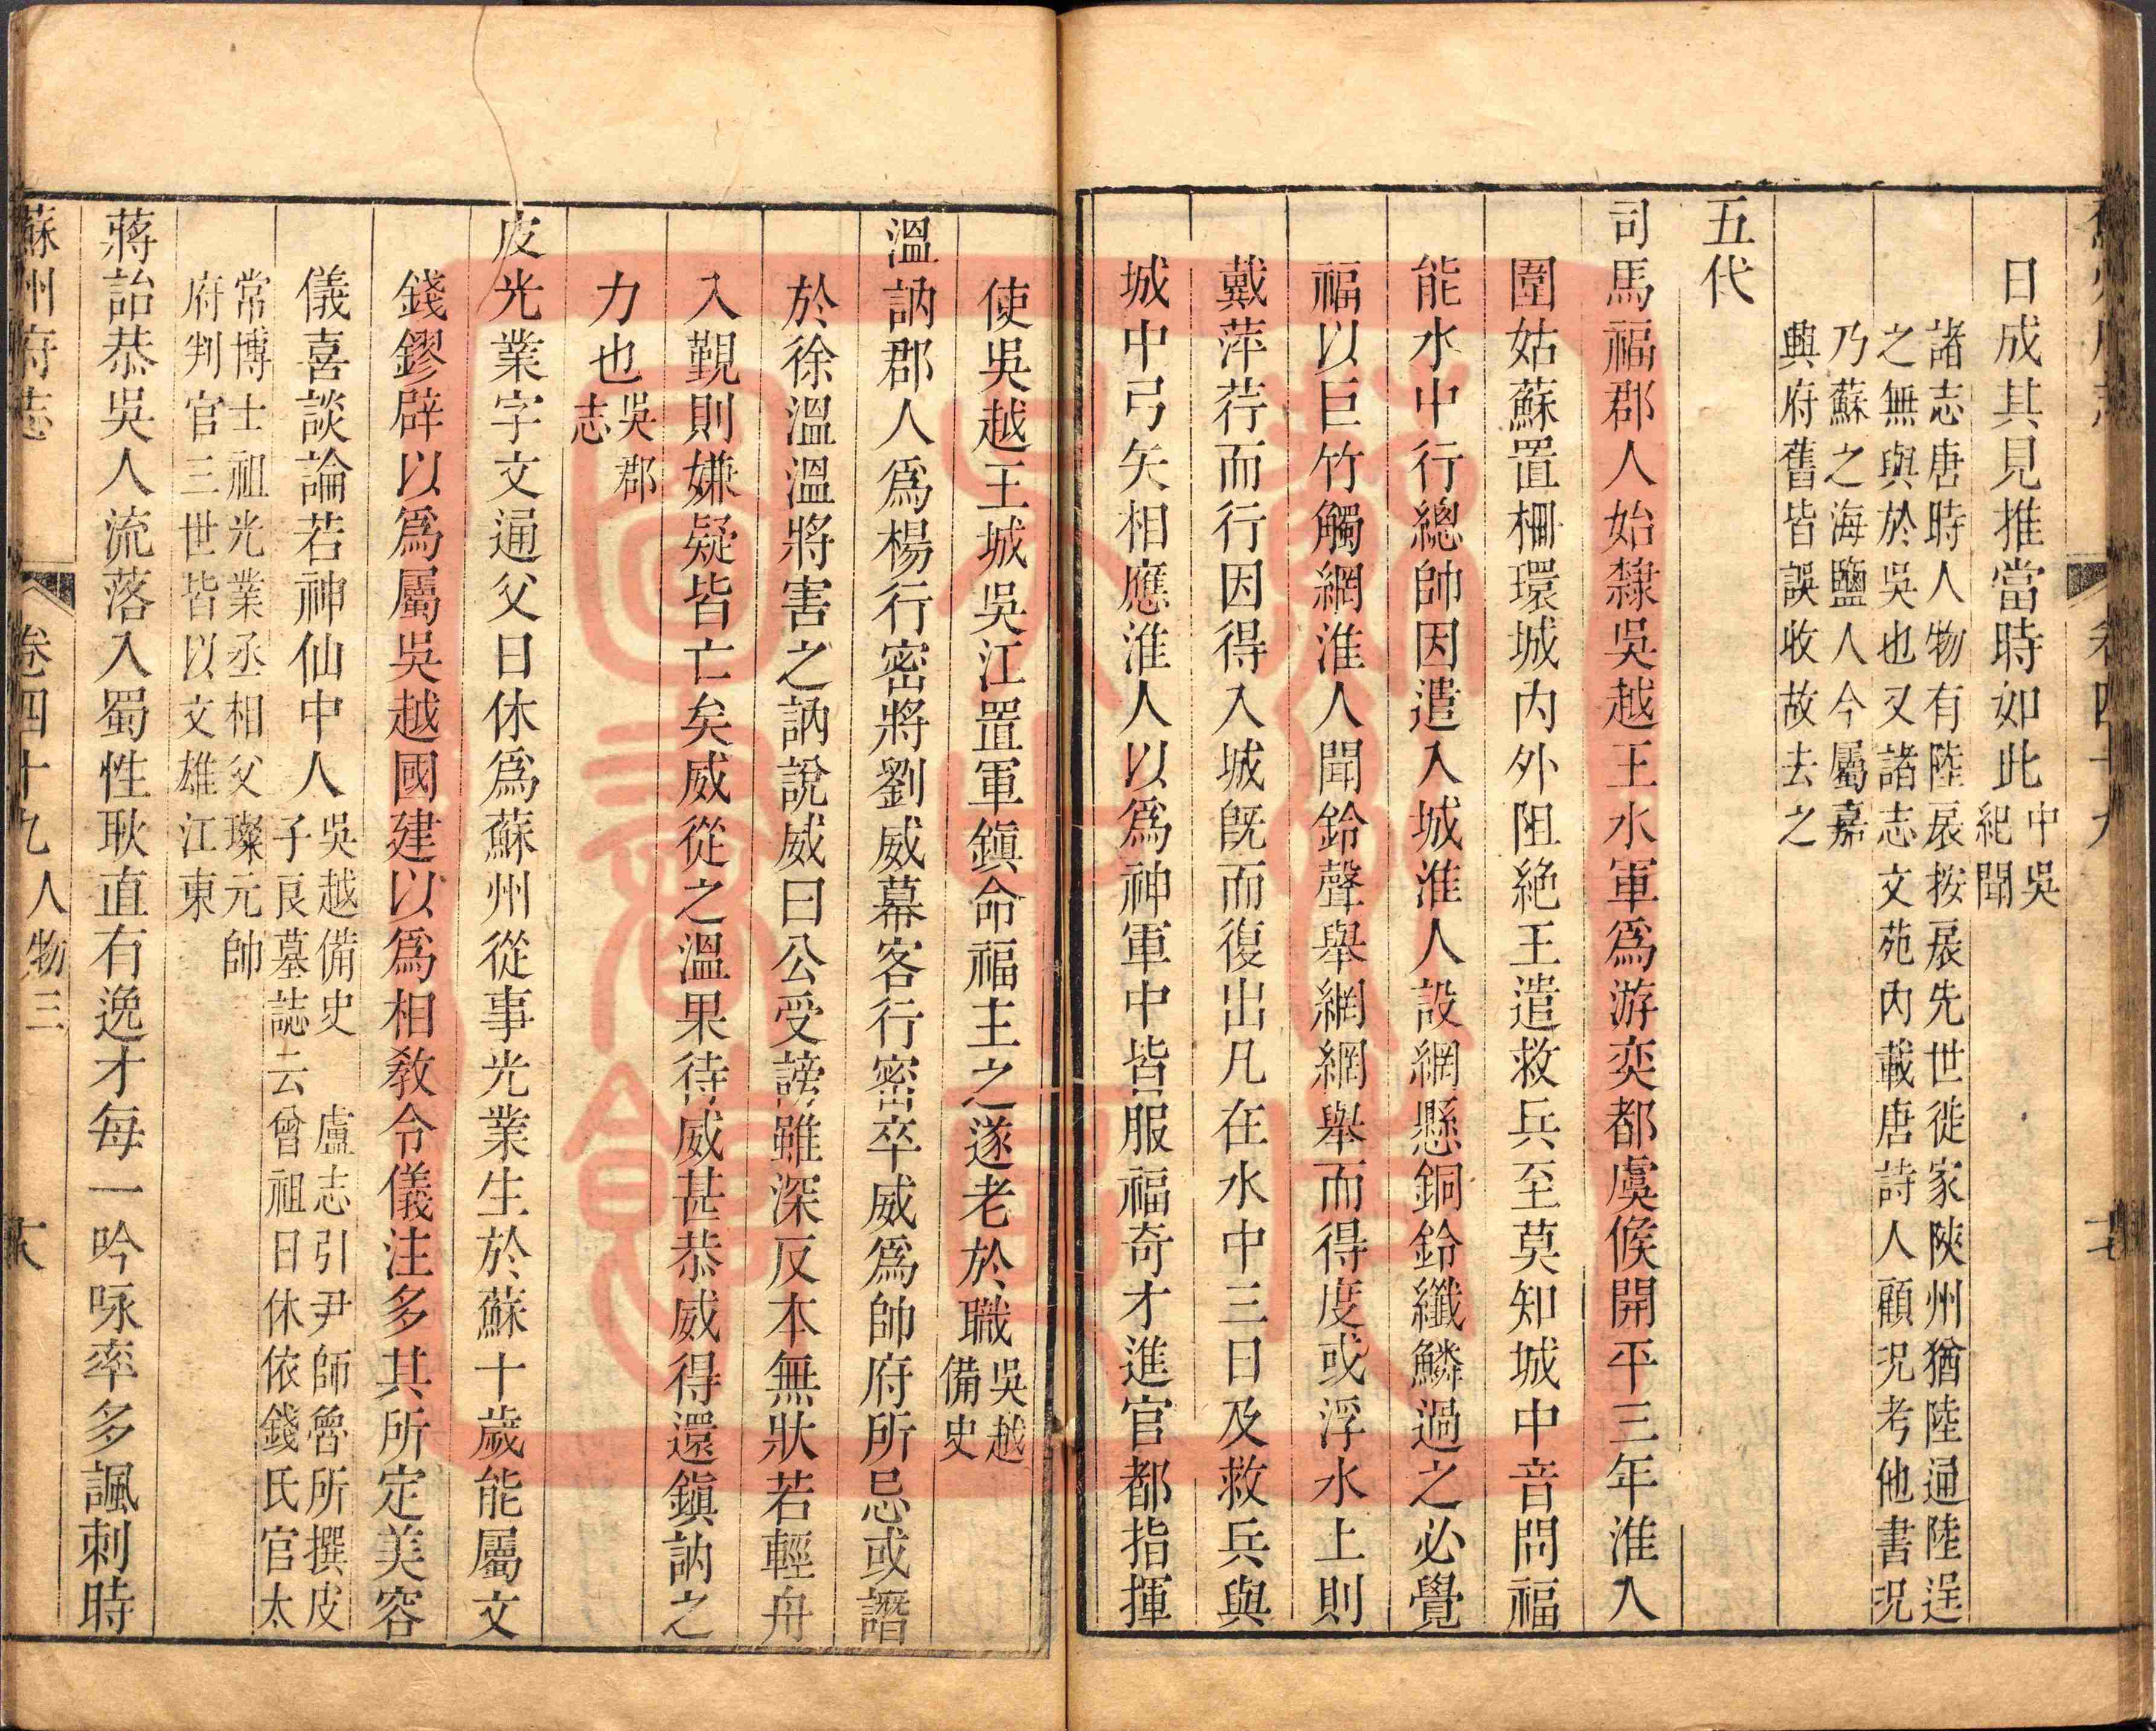 日成其見推當時如此中吳紀聞
諸志唐時人物有陸扆按扆先世徙家陝州猶陸通陸逞
之無與於吳也又諸志文苑內載唐詩人顧況考他書況
乃蘇之海鹽人今屬嘉
興府舊皆誤收故去之
五代
司馬福郡人始隸吳越王水軍爲游奕都虞候開平三年淮人
圍姑蘇置柵環城內外阻絕王遣救兵至莫知城中音問福
能水中行總帥因遣入城淮人設網懸銅鈴纖鱗過之必覺
福以巨竹觸網淮人聞鈴聲舉網網舉而得度或浮水上則
戴萍荇而行因得入城旣而復出凡在水中三日及救兵與
城中弓矢相應淮人以爲神軍中皆服福奇才進官都指揮
使吳越王城吳江置軍鎮命福主之遂老於職吳越備史
溫訥郡人爲楊行密將劉威幕客行密卒威爲帥府所忌或譖
於徐溫溫將害之訥說威曰公受謗雖深反本無狀若輕舟
入覲則嫌疑皆亡矣威從之溫果待威甚恭威得還鎮訥之
力也吳郡志
皮光業字文通父日休爲蘇州從事光業生於蘇十歲能屬文
錢鏐辟以爲屬吳越國建以爲相敎令儀注多其所定美容
儀喜談論若神仙中人吳越備史 盧志引尹師魯所撰皮
子良墓誌云曾祖日休依錢氏官太
常博士祖光業丞相父璨元帥
府判官三世皆以文雄江東
蔣詒恭吳人流落入蜀性耿直有逸才每一吟咏率多諷刺時
蘇州府志 卷四十九 人物三 大